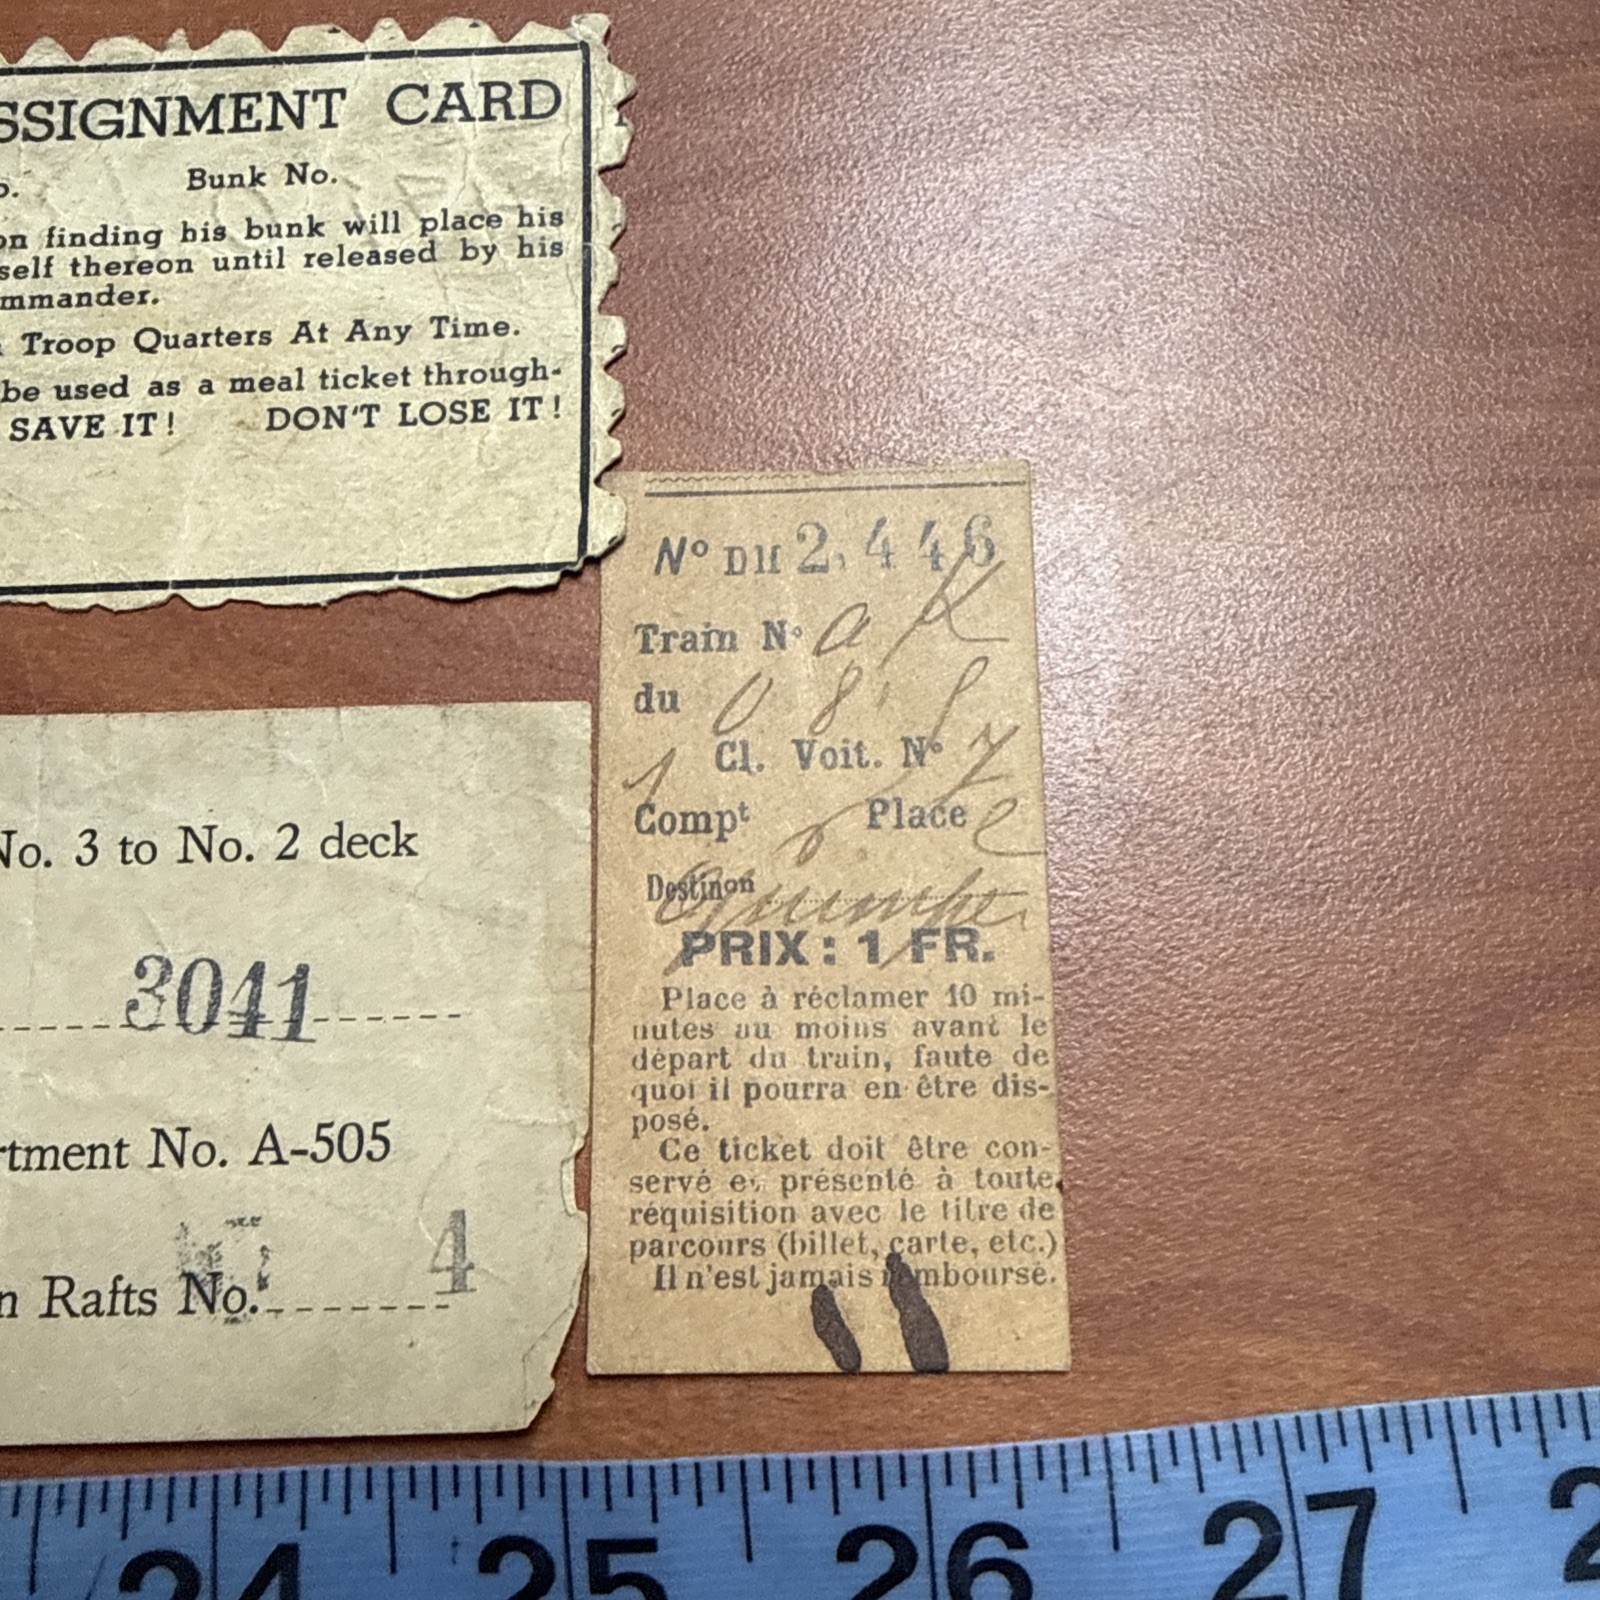 SSIGNMENT CARD
o. Bunk No.
on finding his bunk will place his
self thereon until released by his
mmander.
Troop Quarters At Any Time.
be used as a meal ticket through-
SAVE IT! DON'T LOSE IT!
No. 3 to No. 2 deck
3041
rtment No. A-505
4
n Rafts No.
N° DH 2.446
Train N°
du
1 Cl. Voit. N°
Compt Place 2
Destinon Quimper
PRIX : 1 FR.
Place à réclamer 10 mi-
nutes au moins avant le
départ du train, faute de
quoi il pourra en être dis-
posé.
Ce ticket doit être con-
servé et présenté à toute
réquisition avec le titre de
parcours (billet, carte, etc.)
Il n'est jamais remboursé.
24 25 26 27 2